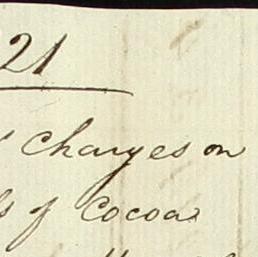 21
charges on
of Cocoa